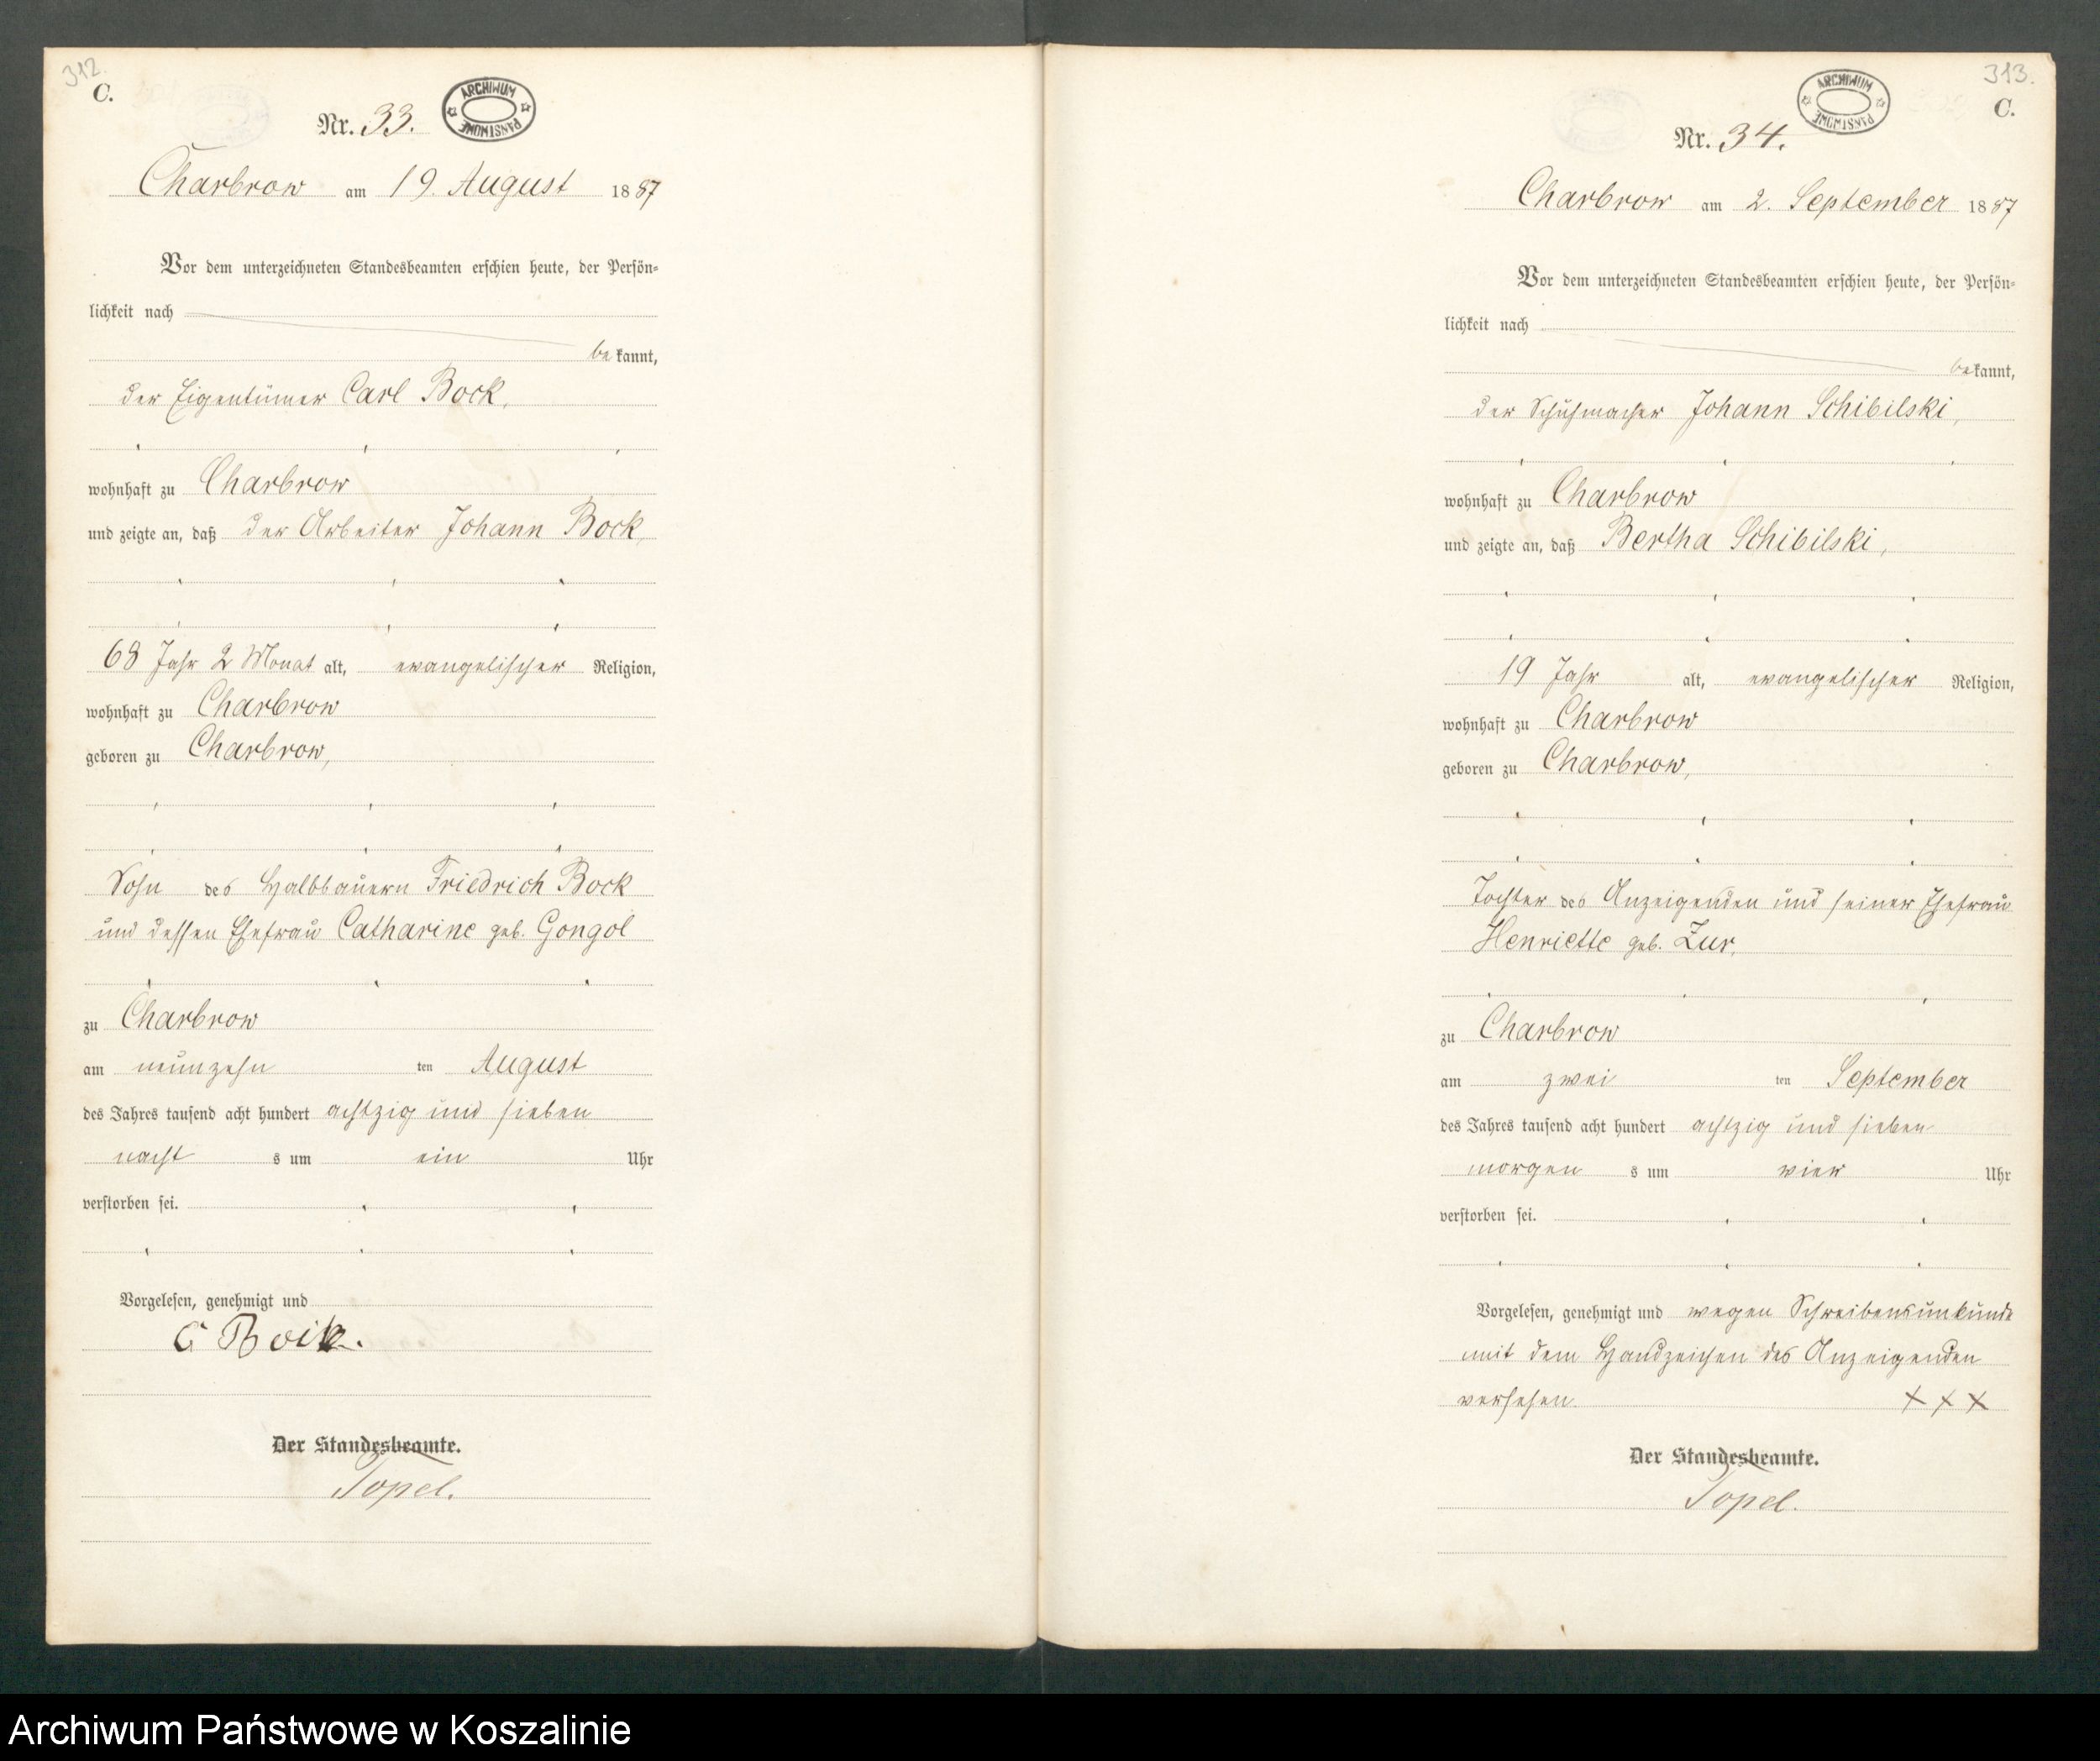 312.
C.
ARCHIWUM PAŃSTWOWE
Nr. 33.
Charbrow am 19. August 1887
Vor dem unterzeichneten Standesbeamten erschien heute, der Persön-
lichkeit nach
bekannt,
der Eigentümer Carl Bock,
wohnhaft zu Charbrow
und zeigte an, daß der Arbeiter Johann Bock,
68 Jahr 2 Monat alt, evangelischer Religion,
wohnhaft zu Charbrow
geboren zu Charbrow,
Sohn des Halbbauern Friedrich Bock
und dessen Ehefrau Catharine geb. Gongol
zu Charbrow
am neunzehn ten August
des Jahres tausend acht hundert achtzig und sieben
nacht s um ein Uhr
verstorben sei.
Vorgelesen, genehmigt und
C Bock.
Der Standesbeamte.
Topel.
313.
C.
ARCHIWUM PAŃSTWOWE
Nr. 34.
Charbrow am 2. September 1887
Vor dem unterzeichneten Standesbeamten erschien heute, der Persön-
lichkeit nach
bekannt,
der Schuhmacher Johann Schibilski,
wohnhaft zu Charbrow
und zeigte an, daß Bertha Schibilski,
19 Jahr alt, evangelischer Religion,
wohnhaft zu Charbrow
geboren zu Charbrow,
Tochter des Anzeigenden und seiner Ehefrau
Henriette geb. Zur,
zu Charbrow
am zwei ten September
des Jahres tausend acht hundert achtzig und sieben
morgen s um vier Uhr
verstorben sei.
Vorgelesen, genehmigt und wegen Schreibensunkunde
mit dem Handzeichen des Anzeigenden
versehen. XXX
Der Standesbeamte.
Topel.
Archiwum Państwowe w Koszalinie